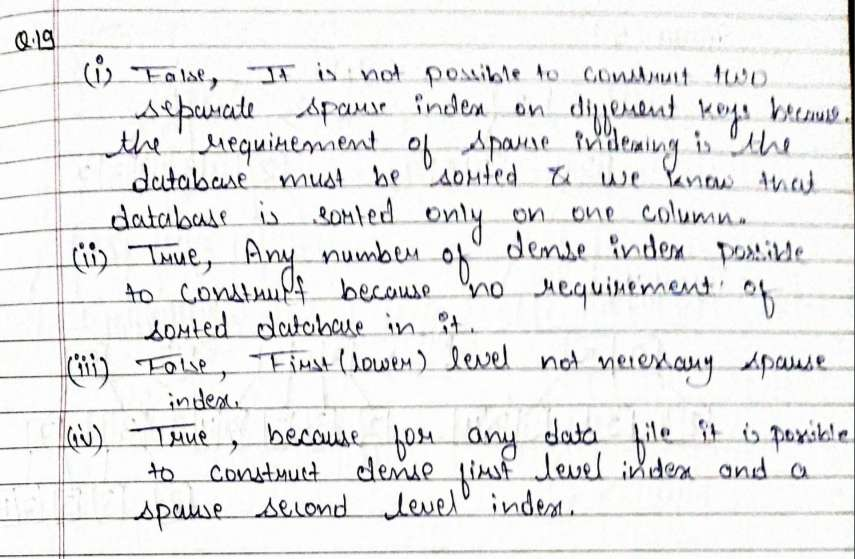 Q.19
(i) False, It is not possible to construct two
separate sparse index on different keys because.
the requirement of sparse indexing is the
database must be sorted & we know that
database is sorted only on one column.
(ii) True, Any number of dense index possible
to construct because no requirement of
sorted database in it.
(iii) False, First (lower) level not necessary sparse
index.
(iv) True, because for any data file it is possible
to construct dense first level index and a
sparse second level index.